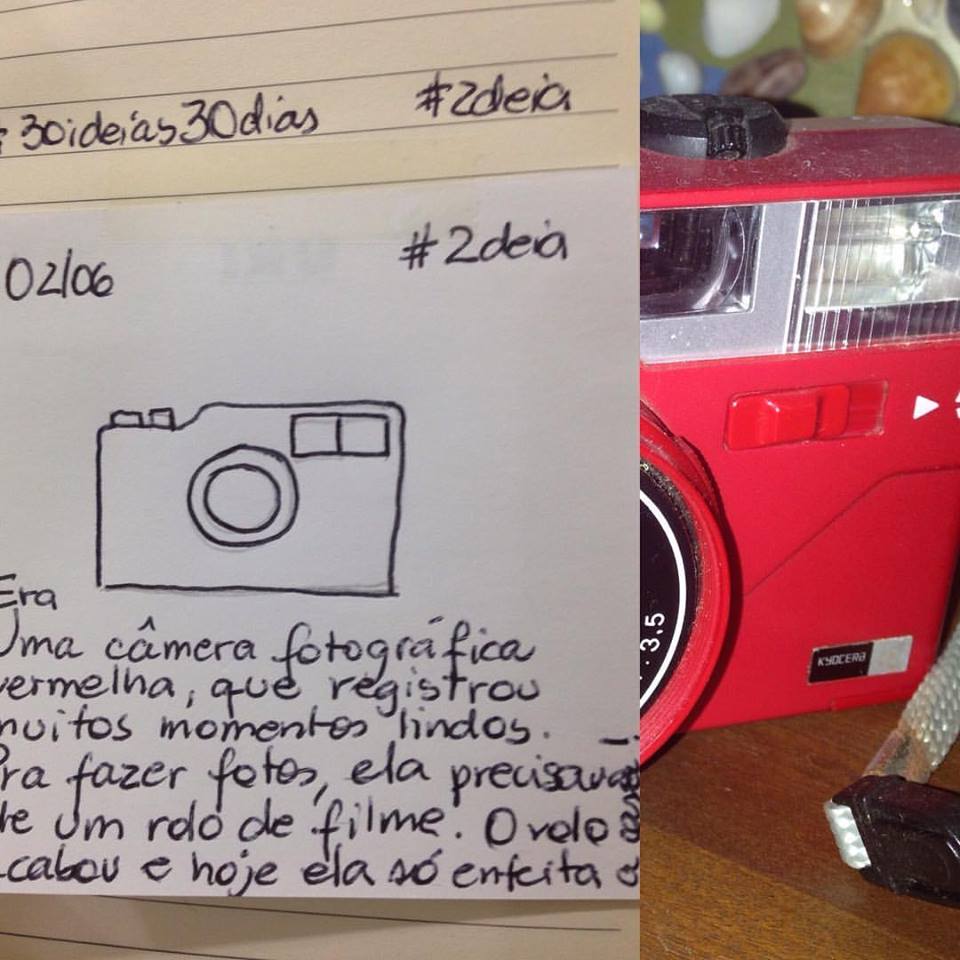 #30ideias30dias #2deia
02/06 #2deia
Era
Uma câmera fotográfica
vermelha, que registrou
muitos momentos lindos.
Pra fazer fotos, ela precisava
de um rolo de filme. O rolo
acabou e hoje ela só enfeita
3.5
KYOCERA